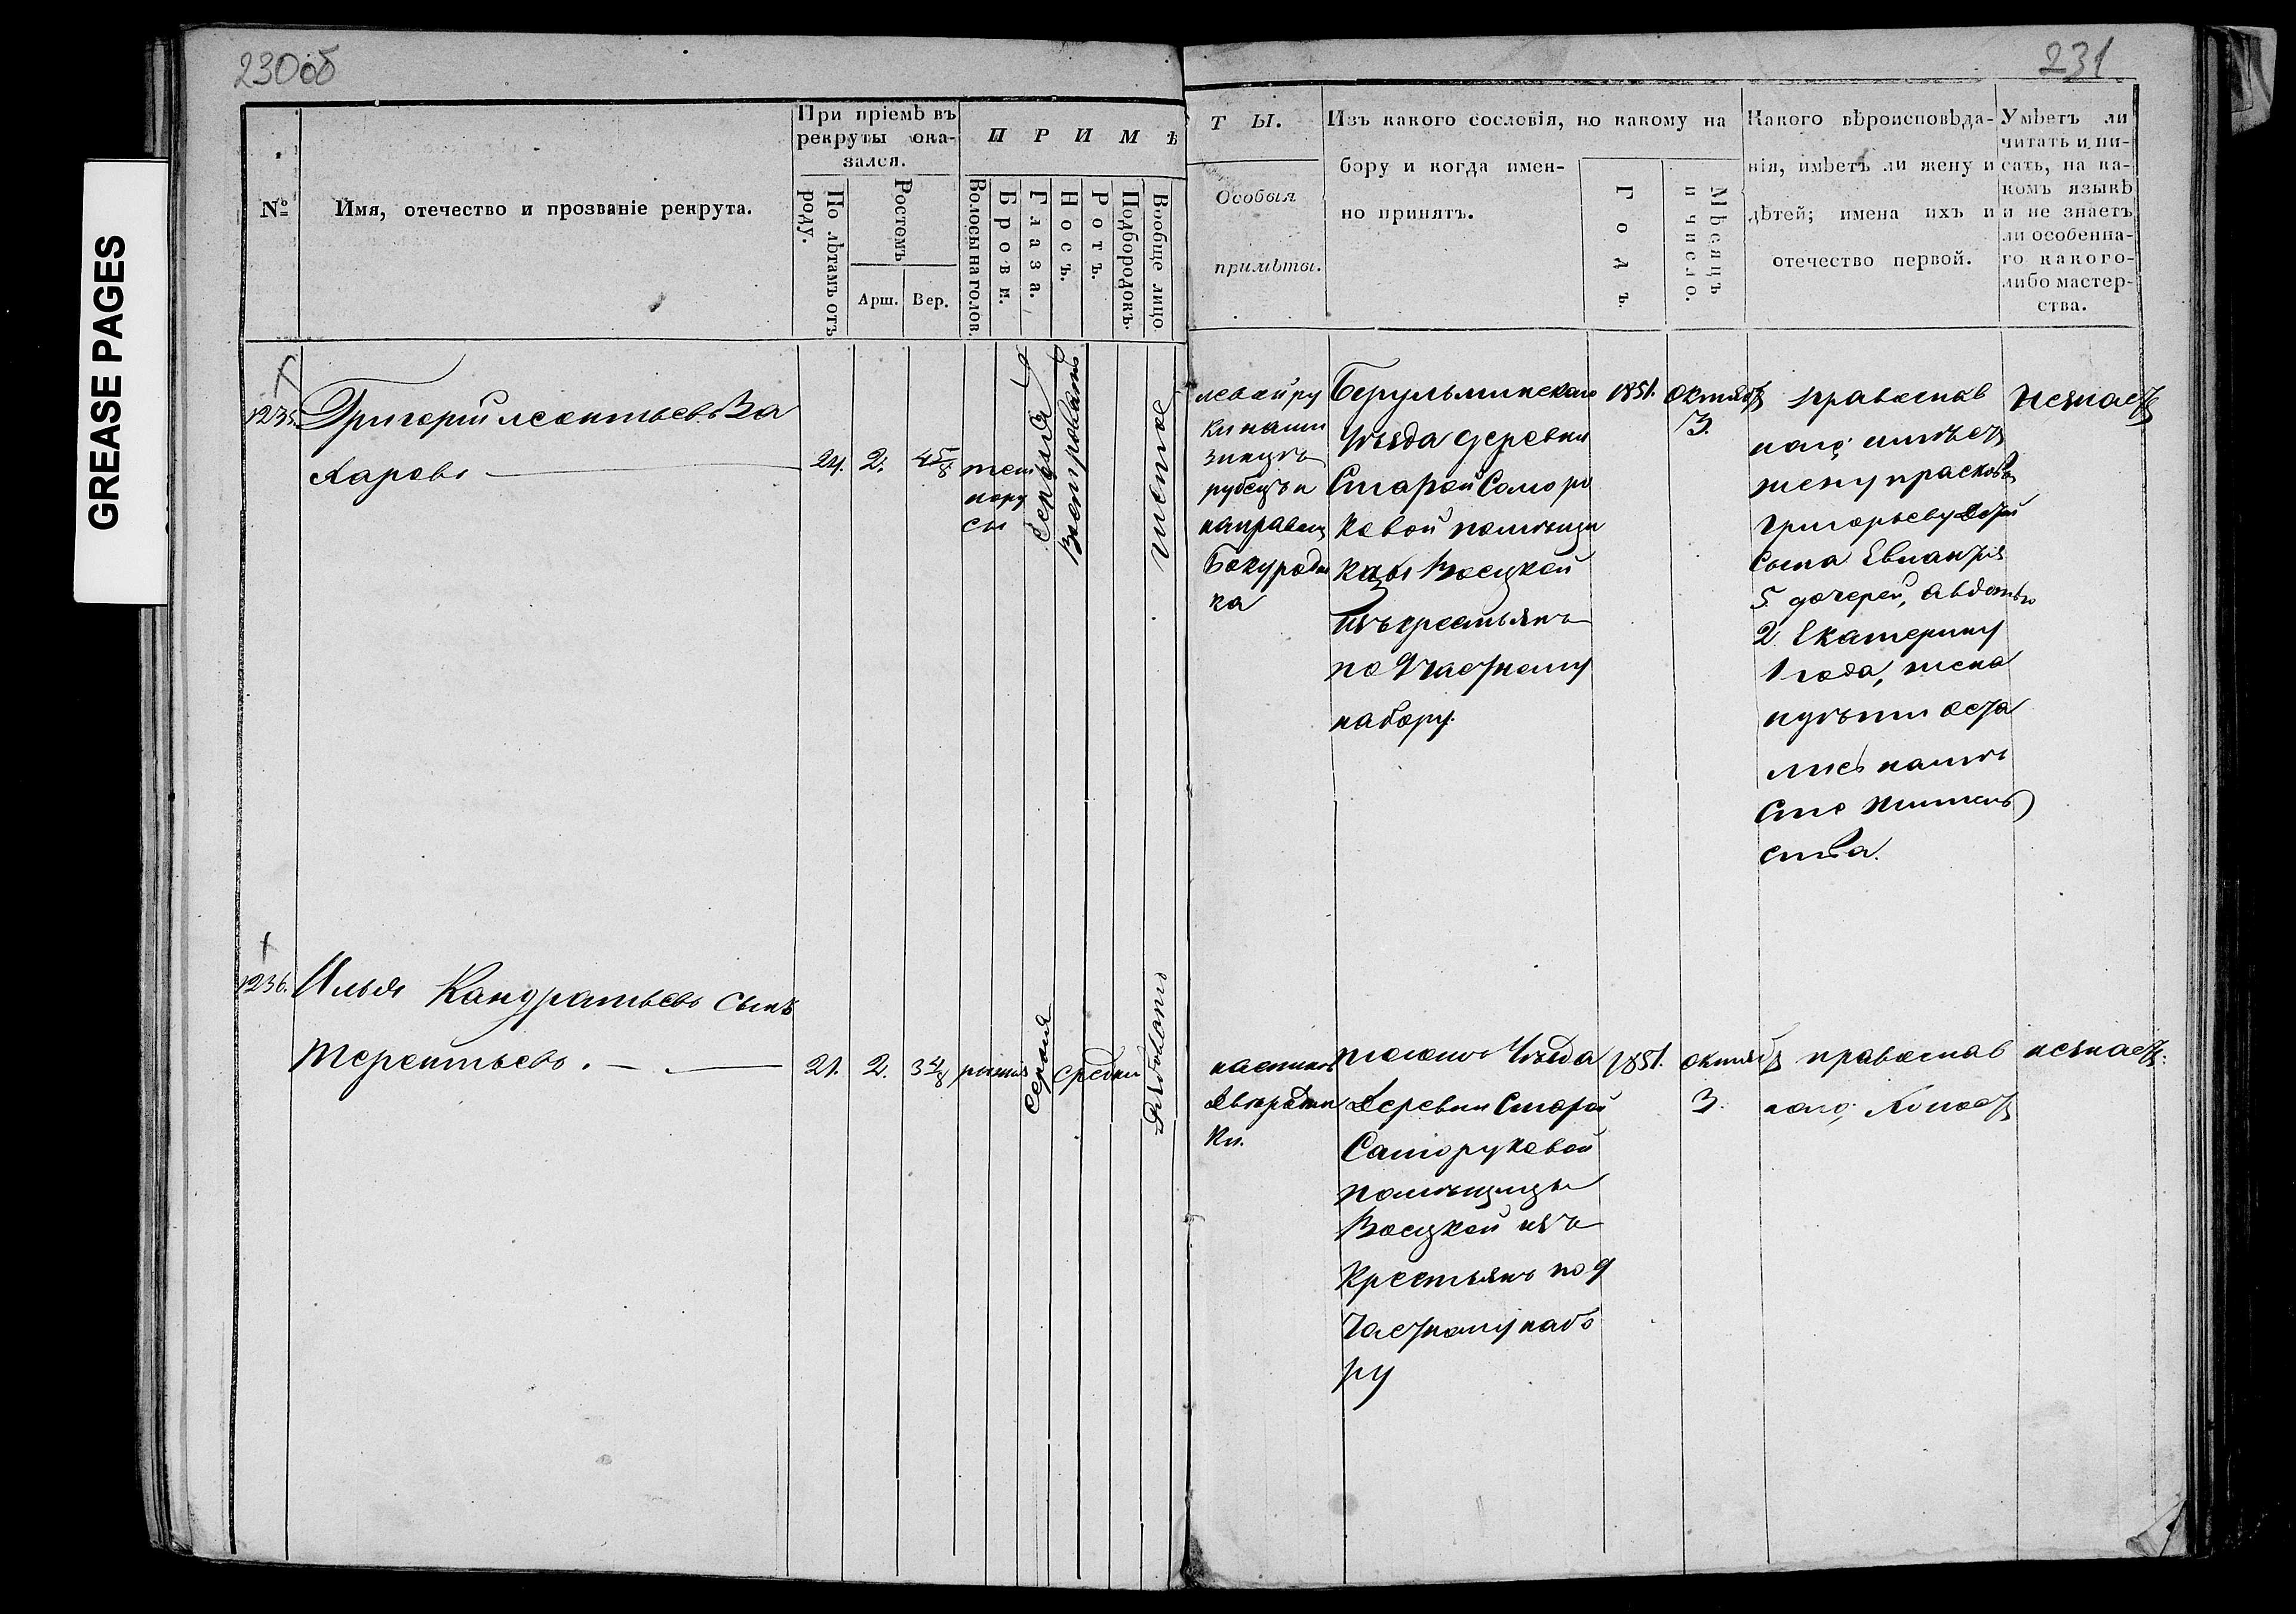 230об
231
GREASE PAGES
№
Имя, отечество и прозваніе рекрута.
При пріемѣ въ
рекруты ока-
зался.
По лѣтамъ отъ
роду.
Ростомъ
Арш.
Вер.
ПРИМѢ
Волосы на голов.
Брови.
Глаза.
Носъ.
Ротъ.
Подбородокъ.
Вообще лицо
ТЫ.
Особыя
примѣты.
Изъ какого сословія, по какому на
бору и когда имен-
но принятъ.
Годъ.
Мѣсяцъ
и число.
Какого вѣроисповѣда-
нія, имѣетъ ли жену и
дѣтей; имена ихъ и
отечество первой.
Умѣетъ ли
читать и пи-
сать, на ка-
комъ языкѣ
и не знаетъ
ли особенна-
го какого-
либо мастер-
ства.
1235.
Григорій Леонтьевъ За
харовъ
24.
2.
4 5/8
темно
ру
сы
серыя
востроватъ
чистое
левой ру
ки
рубецъ и
на правомъ
боку родин
ка
уѣзда деревни
Старой Соморо
ковой помѣщи
цы Восцкой
изъ крестьянъ
по 9 частному
набору.
1851.
октяб
3.
православ
наго имѣетъ
жену прасковью
григорьеву детей
сына
5 дочерей, авдотью
2 Екатерину
1 года, жена
и дѣти оста
лись на мѣ
сте житель
ства.
незнаетъ
1236.
Илья Кандратьевъ сынъ
Терентьевъ.
21.
2.
3 4/8
русыя
серыя
средни
рябовато
на спинѣ
две родин
ки.
тогожъ Уѣзда
деревни Старой
Саморуковой
помѣщицы
Восцкой изъ
крестьянъ по 9
частному набо
ру
1851.
октяб
3.
православ
наго, холостъ
незнаетъ.